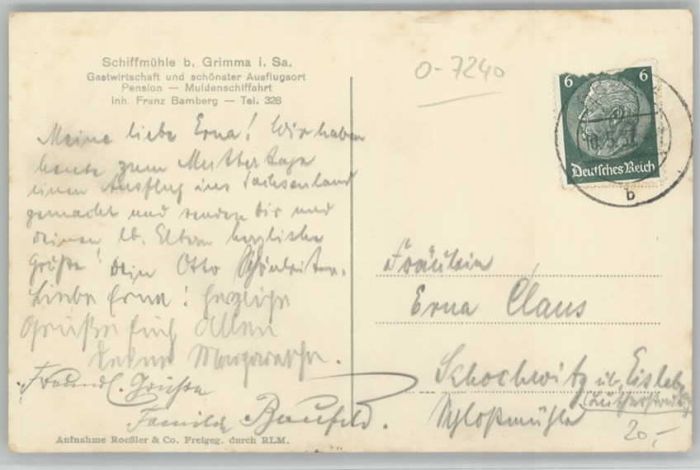 Schiffmühle b. Grimma i. Sa.
Gastwirtschaft und schönster Ausflugsort
Pension — Muldenschiffahrt
Inh. Franz Bamberg — Tel. 328
0-7240
6 6
Deutsches Reich
b
Meine liebe Erna! Wir haben
heute zum Muttertage
einen Ausflug ins Sachsenland
gemacht und senden dir und
deinen lb. Eltern herzliche
Grüße! Dein Otto
Liebe Erna! Herzliche
Grüße Euch Allen
Deine Margarethe.
Freundl. Grüße
Familie Baufeld.
Fräulein
Erna Claus
Schochwitz üb. Eisleben
(Lutherstadt)
Schloßmühle
20,-
Aufnahme Roeßler & Co. Freigeg. durch RLM.